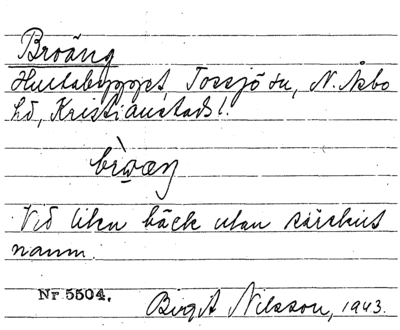 Broäng
Hultabygget Tossjö sn, N. Åsbo
hd, Kristianstads l.
bròæŋ
Vid liten bäck utan särskilt
namn.
Nr 5504.
Birgit Nilsson, 1943.